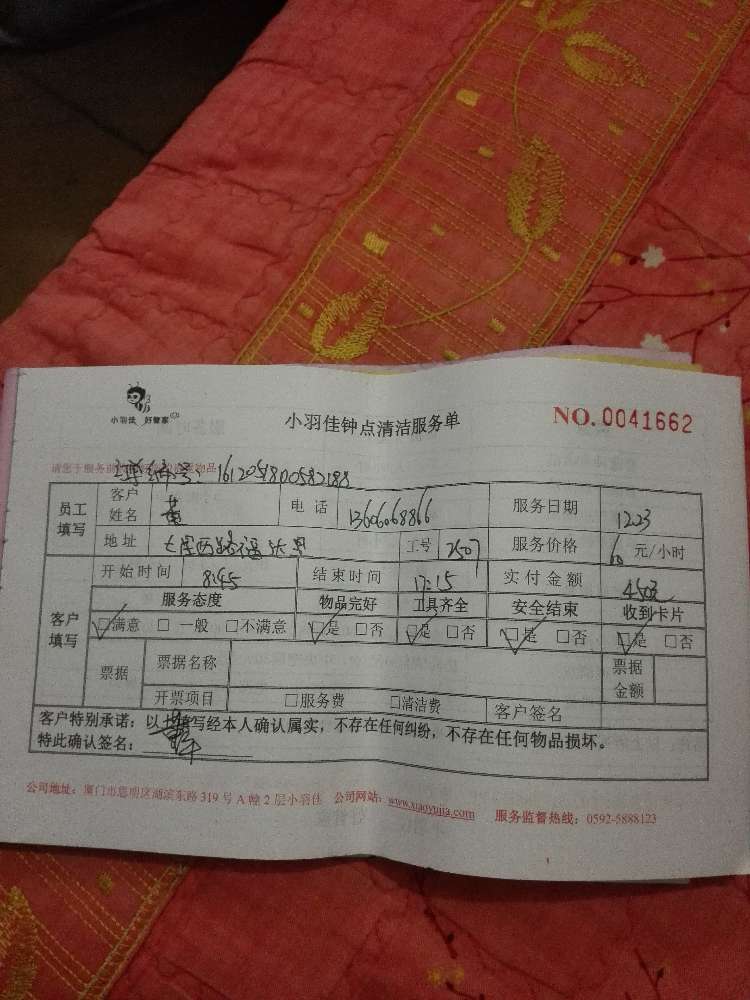 小羽佳 好管家
小羽佳钟点清洁服务单
NO. 0041662
请您于服务前
物品
编号: 1612051800582188
员工填写 客户姓名 黄 电话 13606068866 服务日期 12.23
地址 七星西路福达里 工号 2507 服务价格 60 元/小时
客户填写 开始时间 8:45 结束时间 17:15 实付金额 450元
服务态度 物品完好 工具齐全 安全结束 收到卡片
☑满意 □ 一般 □不满意 ☑是 □否 ☑是 □否 ☑是 □否 ☑是 □否
票据 票据名称 票据金额
开票项目 □服务费 □清洁费 客户签名
客户特别承诺:以上填写经本人确认属实,不存在任何纠纷,不存在任何物品损坏。
特此确认签名:
公司地址:厦门市思明区湖滨东路 319 号 A 幢 2 层小羽佳 公司网站:www.xiaoyujia.com 服务监督热线:0592-5888123